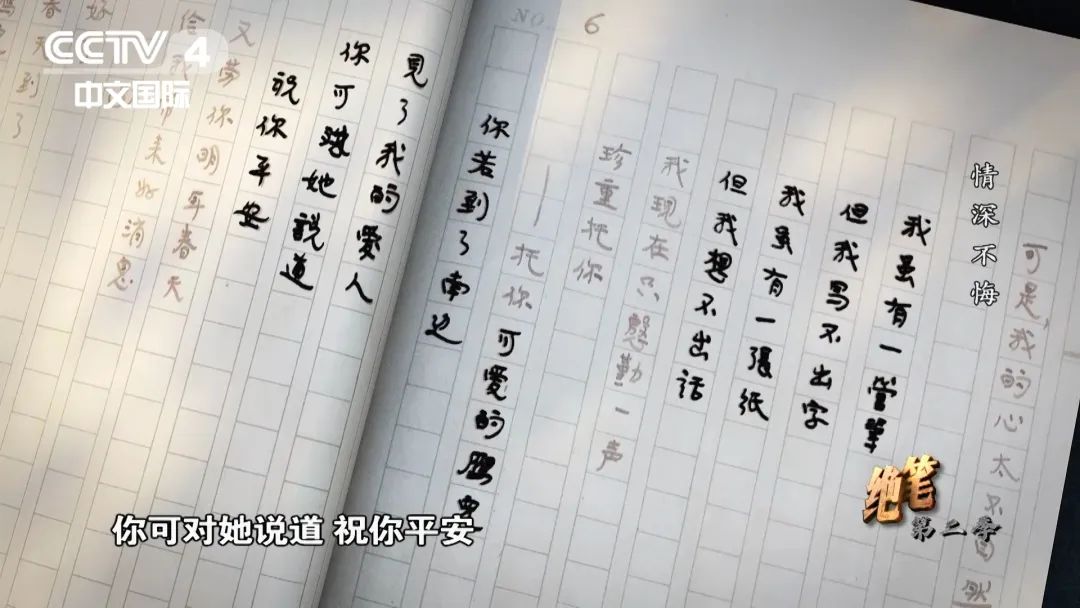 CCTV 4
中文国际
NO. 6
情深不悔
可是,我的心太不自然
我虽有一管筆
但我写不出字
我虽有一張紙
但我想不出話
我現在只慇勤一声
珍重托你
——托你可愛的
你若到了南边
見了我的愛人
你可對她說道
祝你平安
又劳你明年春天
给我带来好消息
你可对她说道 祝你平安
绝笔
第二季